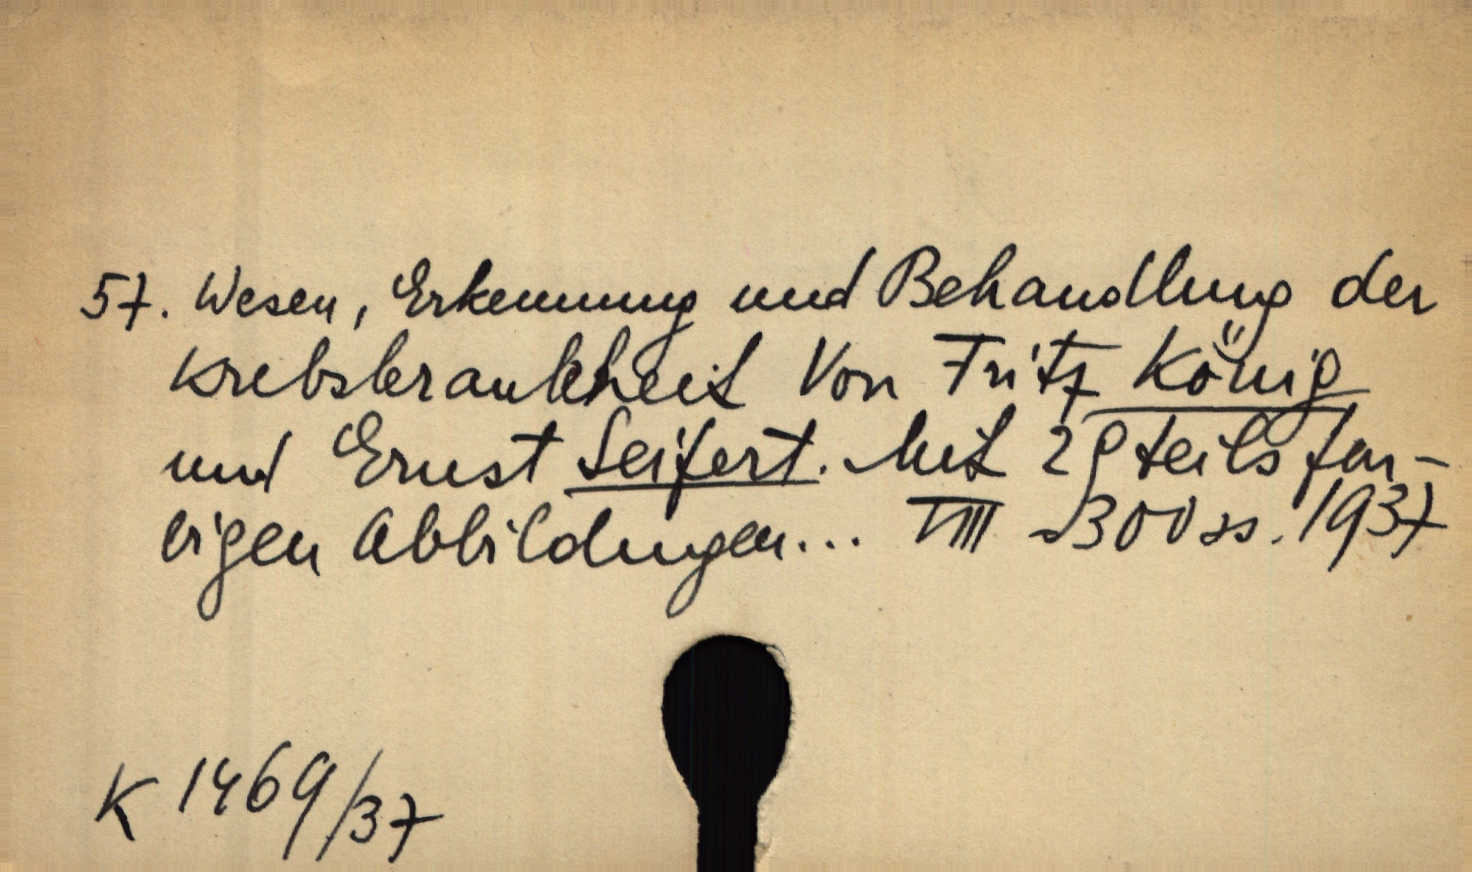 57. Wesen, Erkennung und Behandlung der
Krebskrankheit Von Fritz König
und Ernst Seifert. Mit 29 teils far-
bigen Abbildungen... VIII 300 ss. 1937
K 1469/37